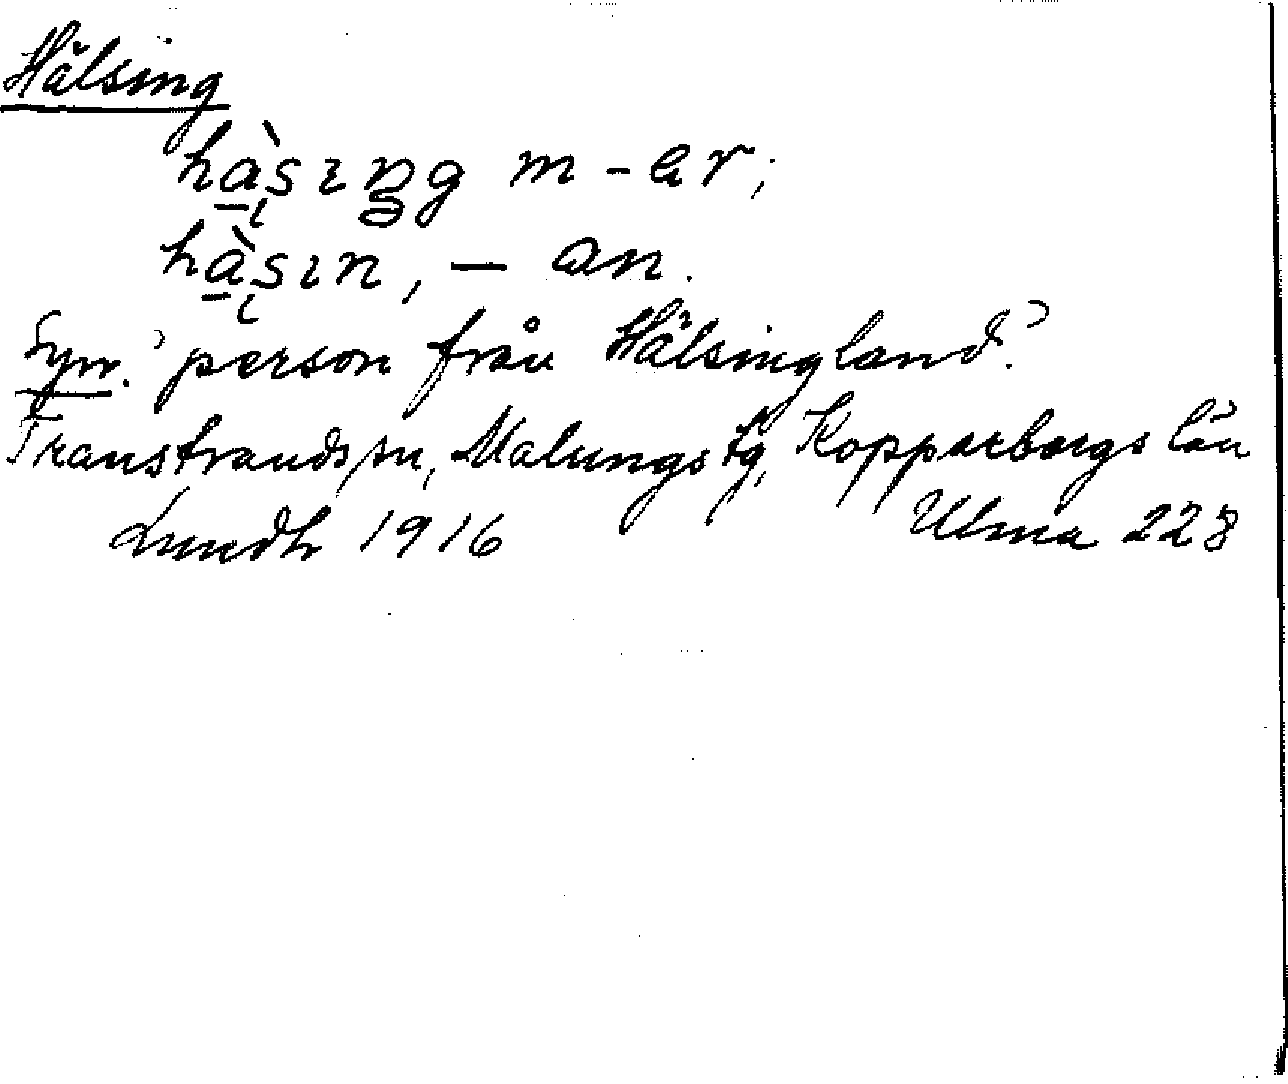 Hälsing
hàsıŋg m -ar;
hàsın, – an.
Syn. ’person från Hälsingland’.
Transtrands sn, Malungs tg, Kopparbergs län
Lundh 1916 Ulma 228